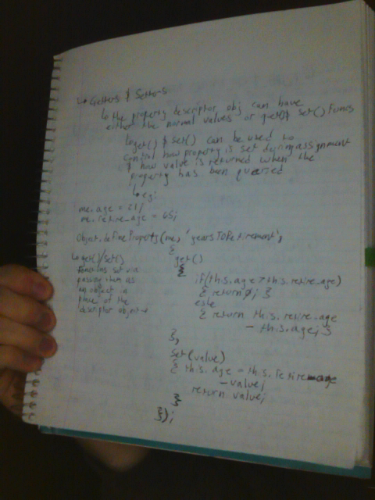 Getters & Setters
↳ the property descriptor obj can have
either the normal values or get() & set() funcs
↳ get() & set() can be used to
control how property is set during assignment
& how value is returned when the
property has been queried
↳ eg:
me.age = 21;
me.retire_age = 65;
Object.defineProperty(me, 'yearsToRetirement',
{
get()
{
if(this.age > this.retire_age)
{ return 0; }
else
{ return this.retire_age
- this.age; }
},
set(value)
{ this.age = this.retire
- value;
return value;
}
});
↳ get()/set()
functions set via
passing them as
an object in
place of the
descriptor object